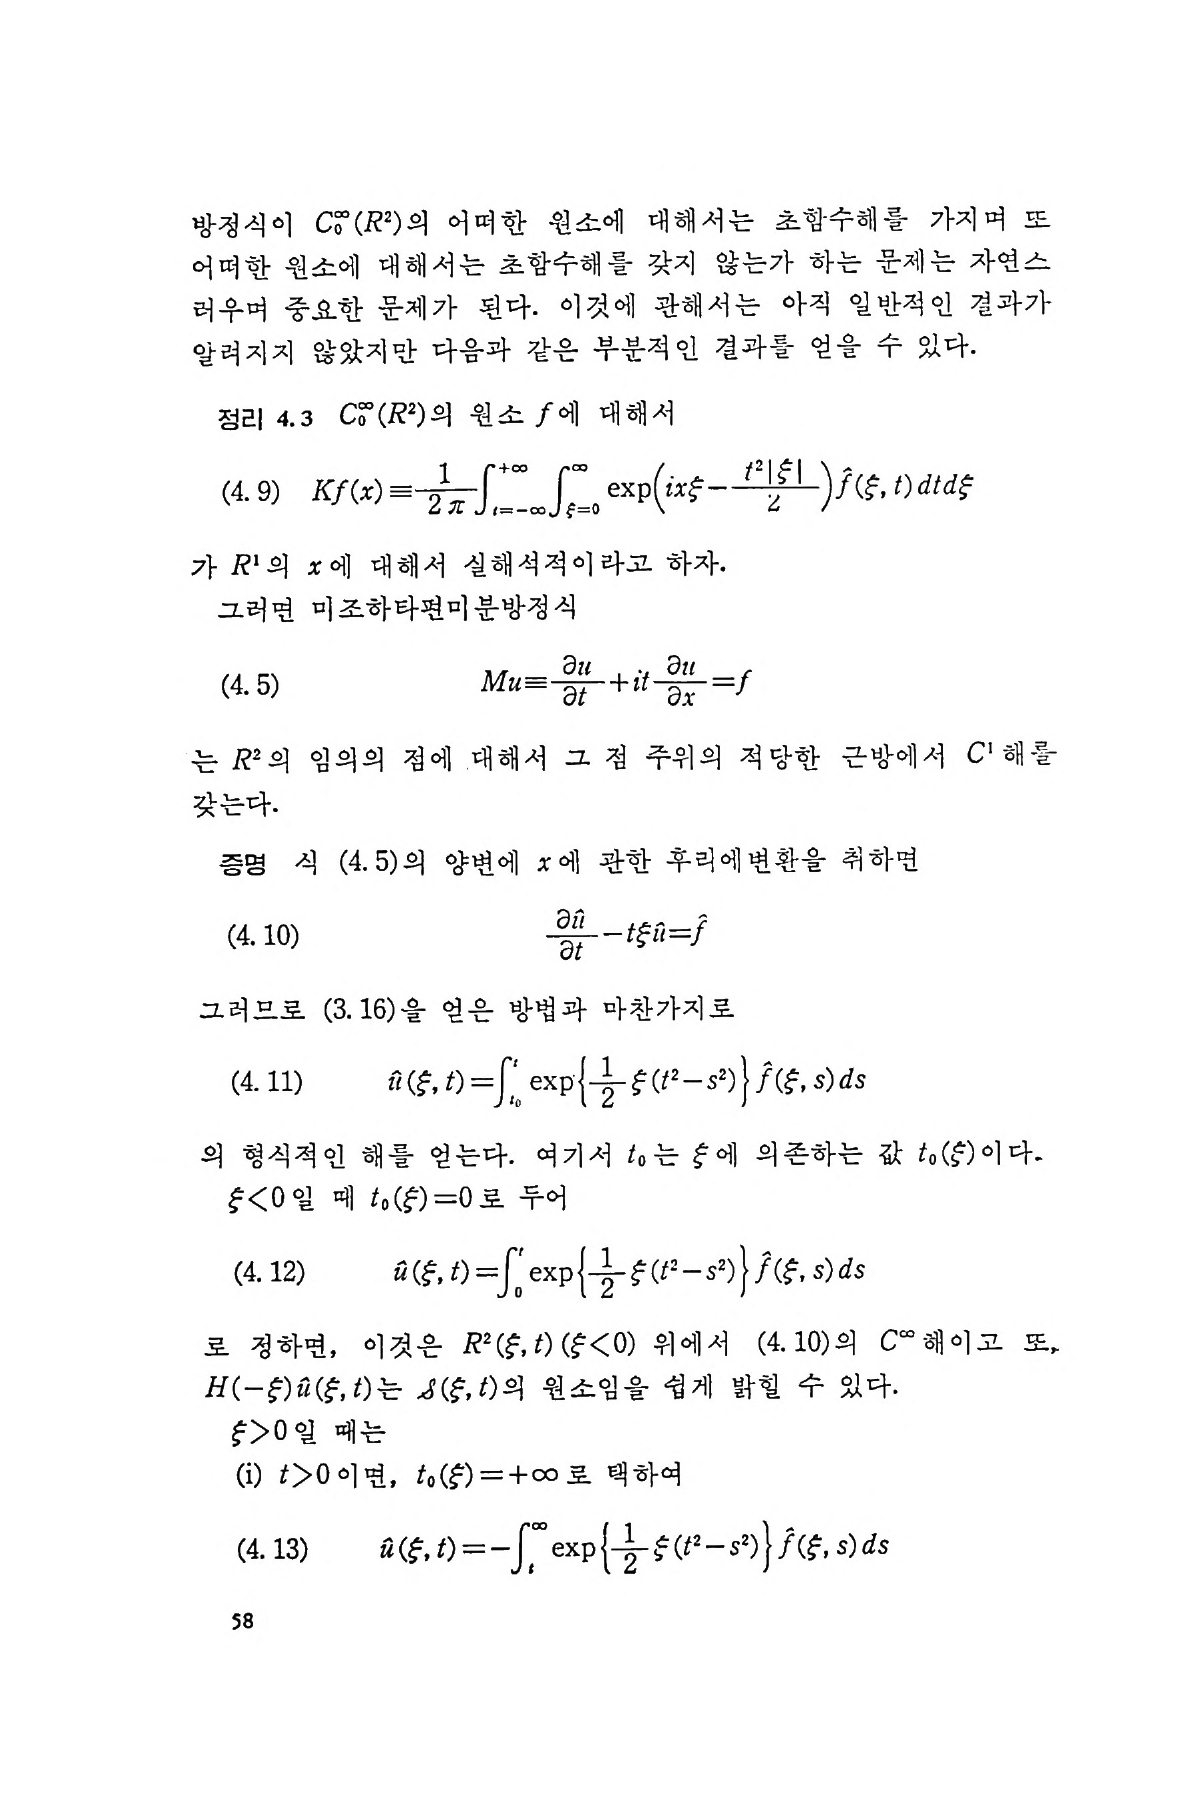 방정식이 C₀^∞(R²)의 어떠한 원소에 대해서는 초함수해를 가지며 또
어떠한 원소에 대해서는 초함수해를 갖지 않는가 하는 문제는 자연스
러우며 중요한 문제가 된다. 이것에 관해서는 아직 일반적인 결과가
알려지지 않았지만 다음과 같은 부분적인 결과를 얻을 수 있다.
정리 4.3 C₀^∞(R²)의 원소 f에 대해서
(4.9) Kf(x)≡\frac{1}{2π}∫_{t=-∞}^{+∞}∫_{ξ=0}^{∞} exp(ixξ−\frac{t²|ξ|}{2})f̂(ξ, t)dtdξ
가 R¹의 x에 대해서 실해석적이라고 하자.
그러면 미조하타편미분방정식
(4.5) Mu≡\frac{∂u}{∂t}+it\frac{∂u}{∂x}=f
는 R²의 임의의 점에 대해서 그 점 주위의 적당한 근방에서 C¹해를
갖는다.
증명 식 (4.5)의 양변에 x에 관한 후리에변환을 취하면
(4.10) \frac{∂û}{∂t}−tξû=f̂
그러므로 (3.16)을 얻은 방법과 마찬가지로
(4.11) û(ξ, t)=∫_{t₀}^{t} exp{\frac{1}{2}ξ(t²−s²)}f̂(ξ, s)ds
의 형식적인 해를 얻는다. 여기서 t₀는 ξ에 의존하는 값 t₀(ξ)이다.
ξ<0일 때 t₀(ξ)=0로 두어
(4.12) û(ξ, t)=∫_{0}^{t} exp{\frac{1}{2}ξ(t²−s²)}f̂(ξ, s)ds
로 정하면, 이것은 R²(ξ, t)(ξ<0) 위에서 (4.10)의 C^∞해이고 또,
H(−ξ)û(ξ, t)는 𝒮(ξ, t)의 원소임을 쉽게 밝힐 수 있다.
ξ>0일 때는
(i) t>0이면, t₀(ξ)=+∞로 택하여
(4.13) û(ξ, t)=−∫_{t}^{∞} exp{\frac{1}{2}ξ(t²−s²)}f̂(ξ, s)ds
58